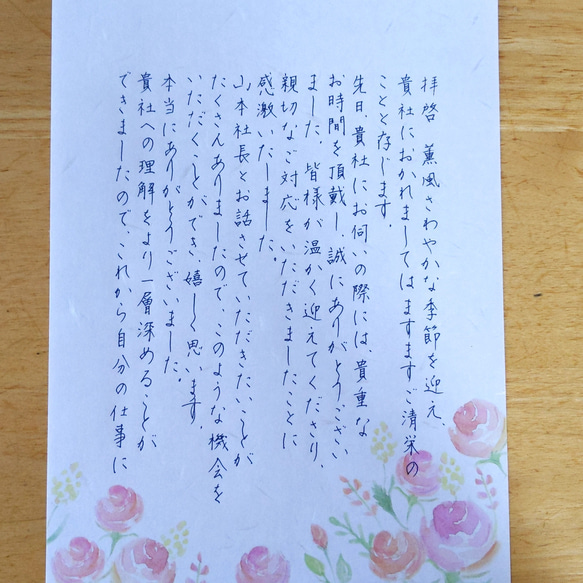 拝啓 薫風さわやかな季節を迎え、
貴社におかれましてはますますご清栄の
ことと存じます。
先日、貴社にお伺いの際には、貴重な
お時間を頂戴し、誠にありがとうござい
ました。皆様が温かく迎えてくださり、
親切なご対応をいただきましたことに
感激いたしました。
山本社長とお話させていただきたいことが
たくさんありましたので、このような機会を
いただくことができ、嬉しく思います。
本当にありがとうございました。
貴社への理解をより一層深めることが
できましたので、これから自分の仕事に